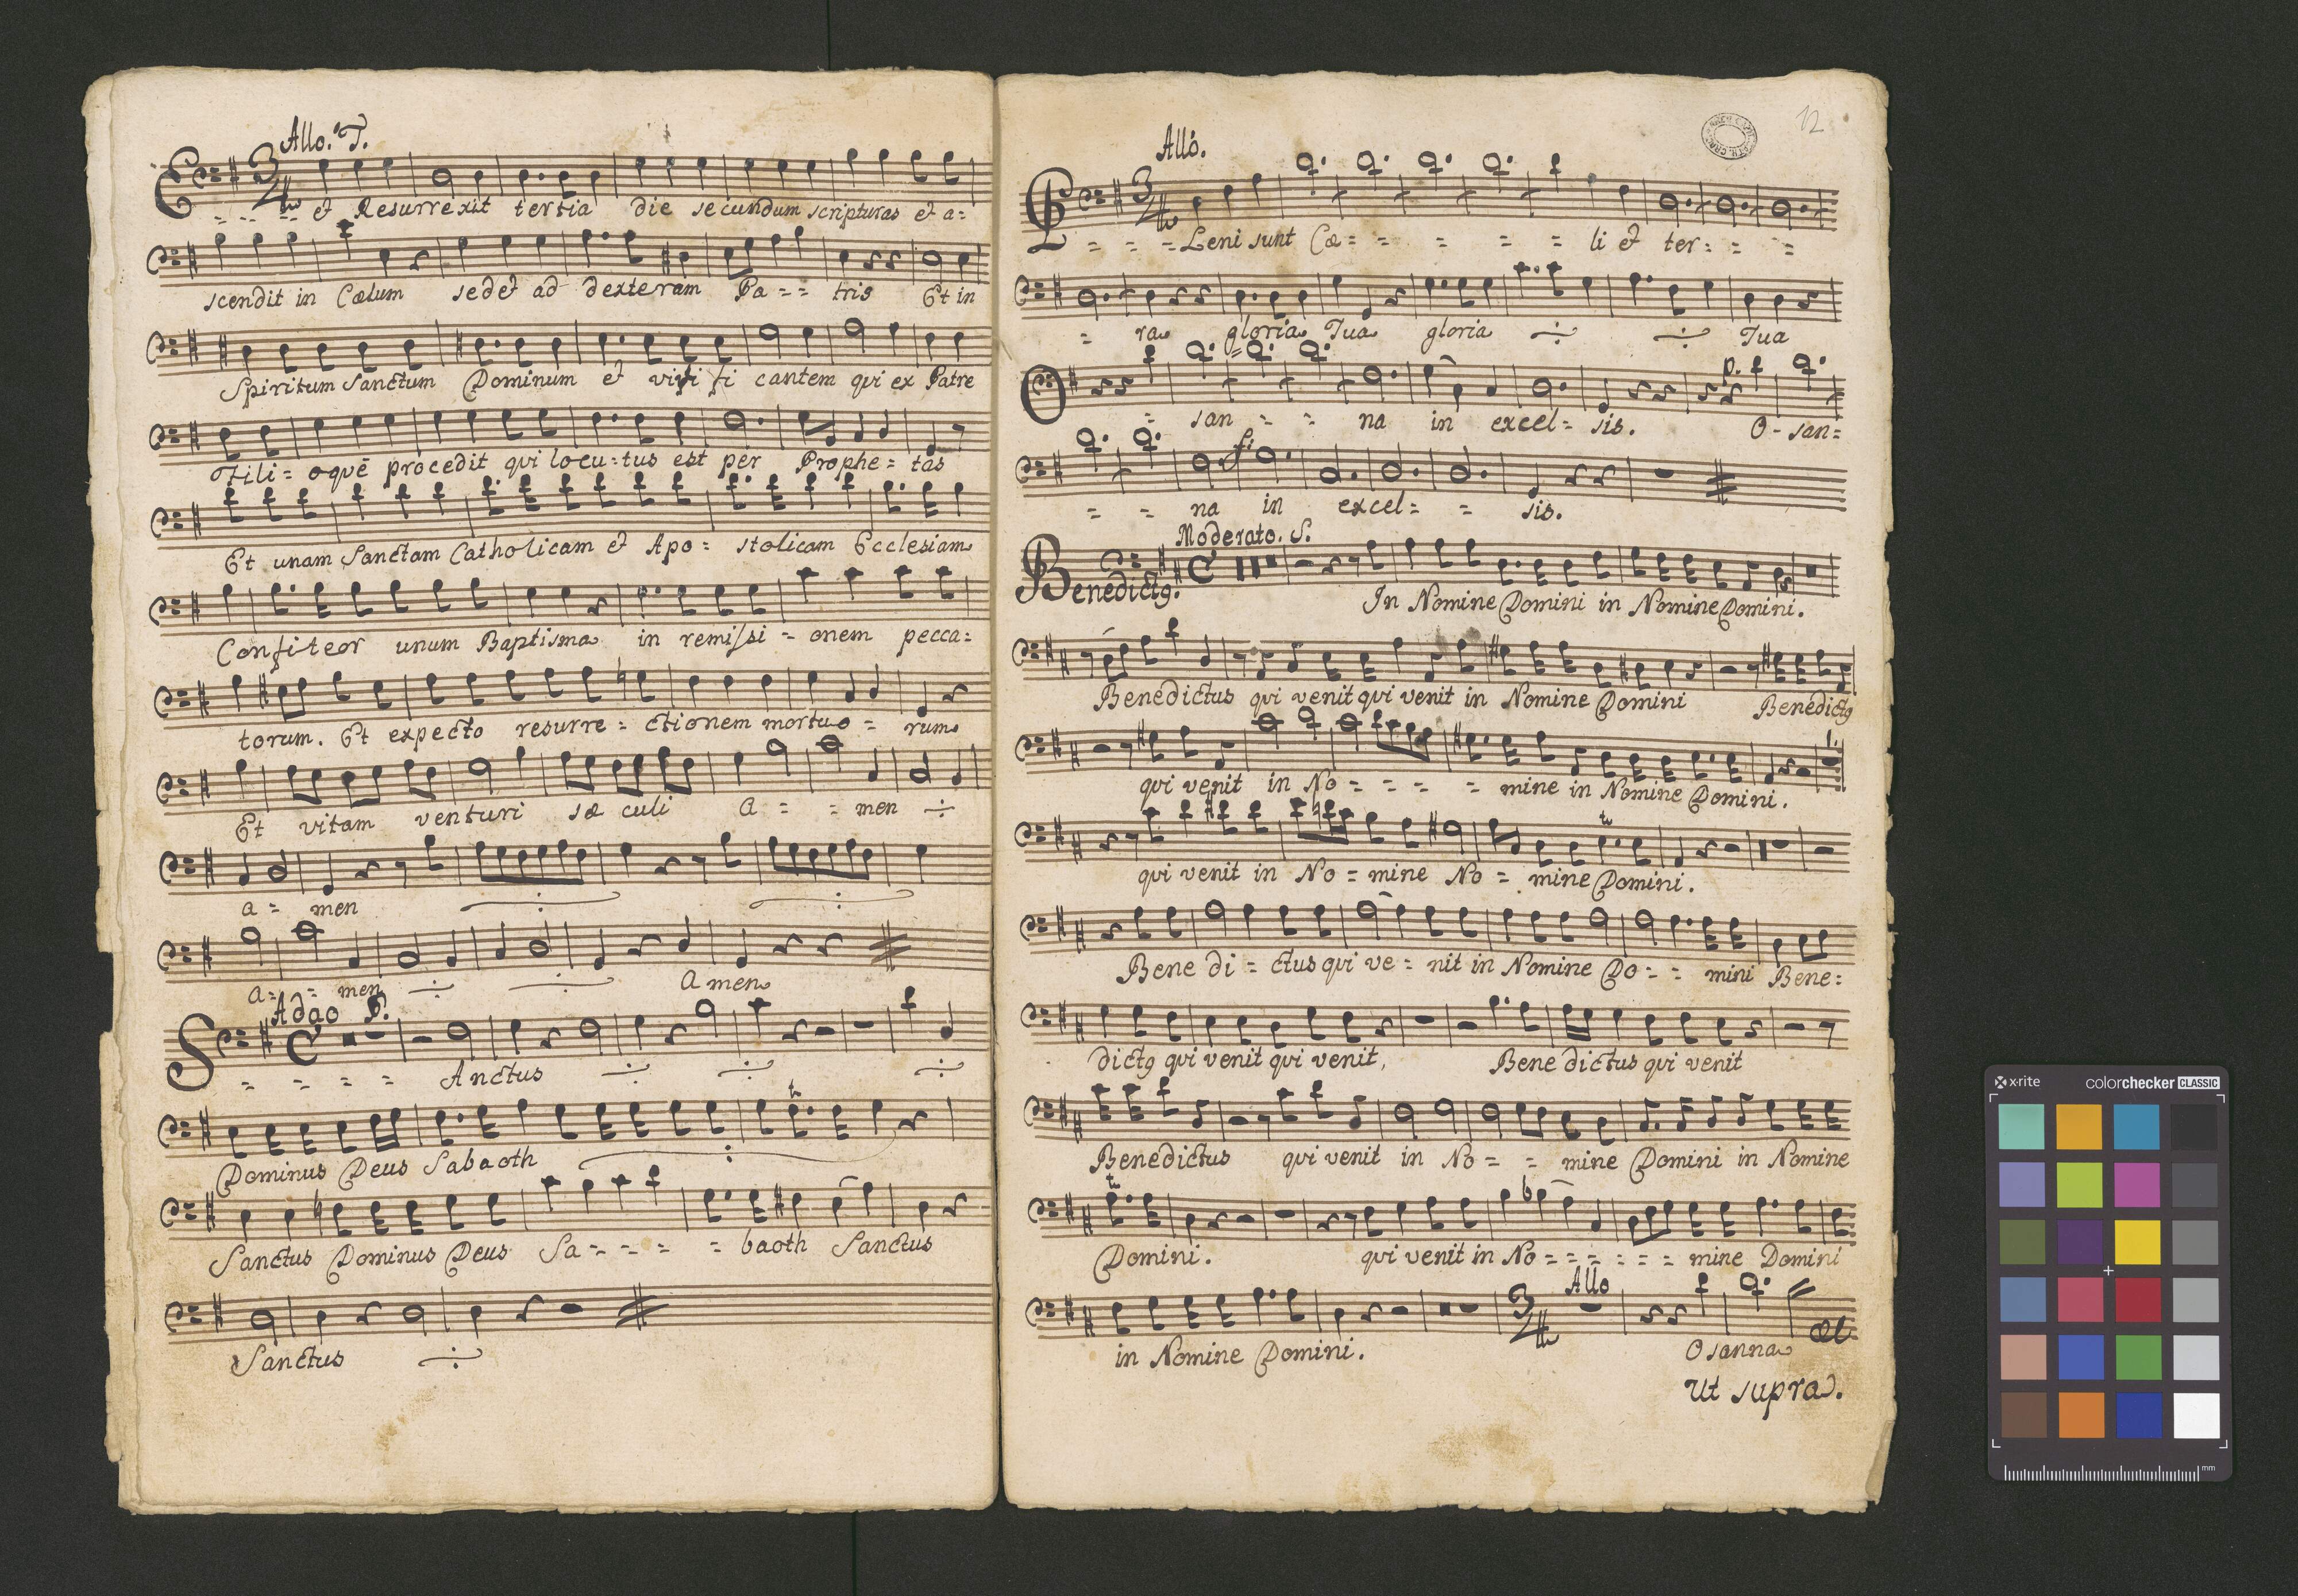 Allo. T.
Et Resurrexit tertia die secundum scripturas et a=
scendit in Cælum sedet ad dexteram Pa - - tris Et in
Spiritum Sanctum Dominum et vivificantem qui ex Patre
Fili= oque procedit qui locu=tus est per Prophe= tas
Et unam Sanctam Catholicam et Apo= stolicam Ecclesiam
Confiteor unum Baptisma in remissi - onem pecca=
torum. Et expecto resurre= ctionem mortuo = rum
Et vitam venturi sæculi a - = men
a = men
a= - men Amen
Adao
SAnctus
Dominus Deus Sabaoth
Sanctus Dominus Deus Sa= - - = baoth Sanctus
Sanctus
12
Allo.
PLeni sunt Cæ= - = = = li et ter= - =
= ra gloria Tua gloria Tua
P.
O = san - - na in excel= sis. O - san=
f.
- - na in excel= = sis.
Moderato. S.
Benedictg. In Nomine Domini in Nomine Domini.
Benedictus qui venit qui venit in Nomine Domini Benedictg
qui venit in No = - - - mine in Nomine Domini.
tr
qui venit in No = mine No = mine Domini.
Bene di = ctus qui ve = nit in Nomine Do= - mini Bene=
dictg qui venit qui venit, Bene dictus qui venit
Benedictus qui venit in No= - mine Domini in Nomine
tr
Domini. qui venit in No = = = = = = mine Domini
Allo
in Nomine Domini. Osanna
Ut supra.
x-rite colorchecker CLASSIC
mm